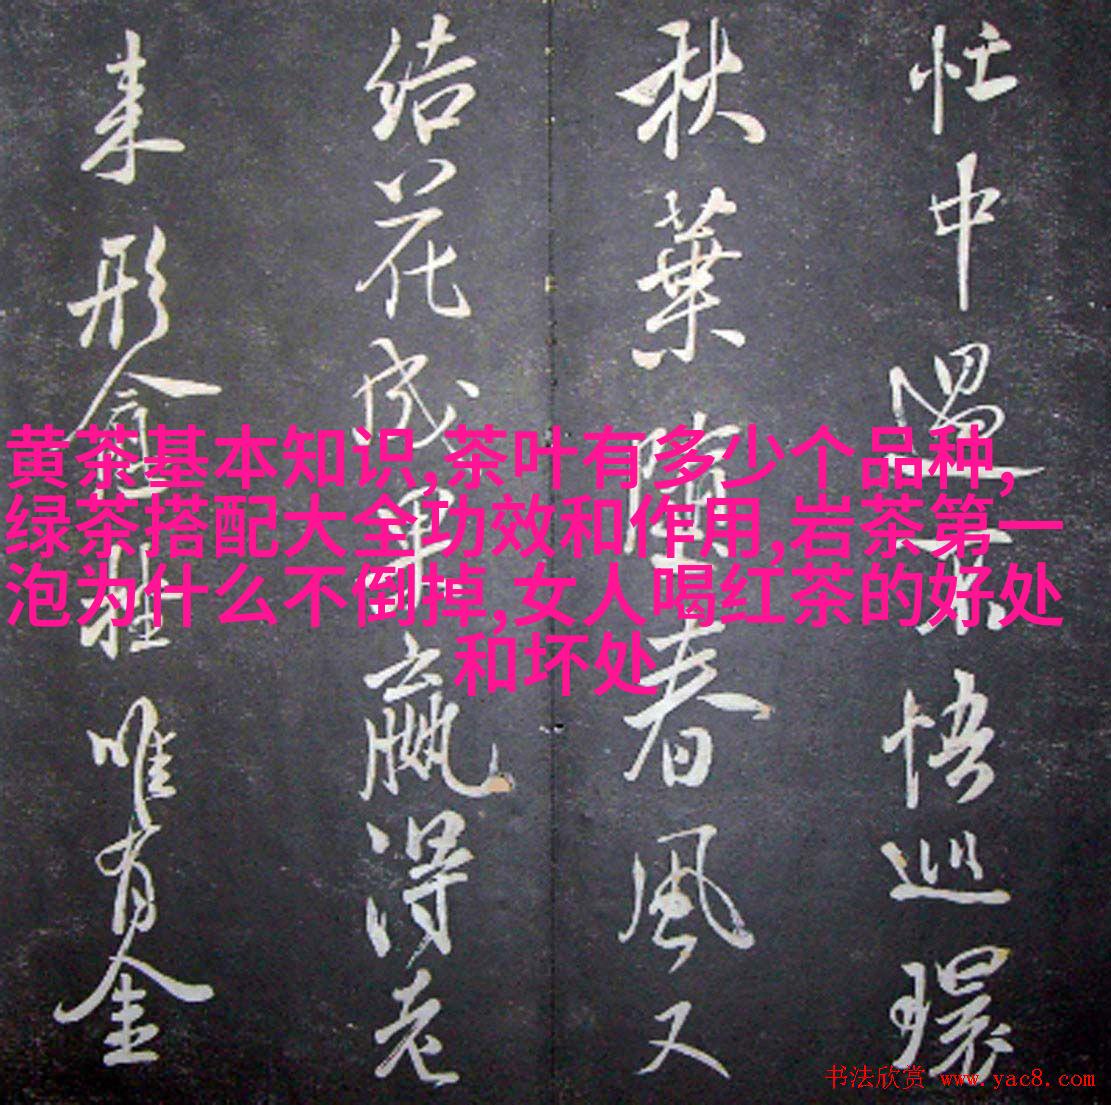 忙中遇不悟巡環
秋葉隕兮春風又
結花成畢竟贏得老
来形企短唯有金
黄茶基本知识,茶叶有多少个品种,
绿茶搭配大全功效和作用,岩茶第一
泡为什么不倒掉,女人喝红茶的好处
和坏处
书法欣赏 www.yac8.com